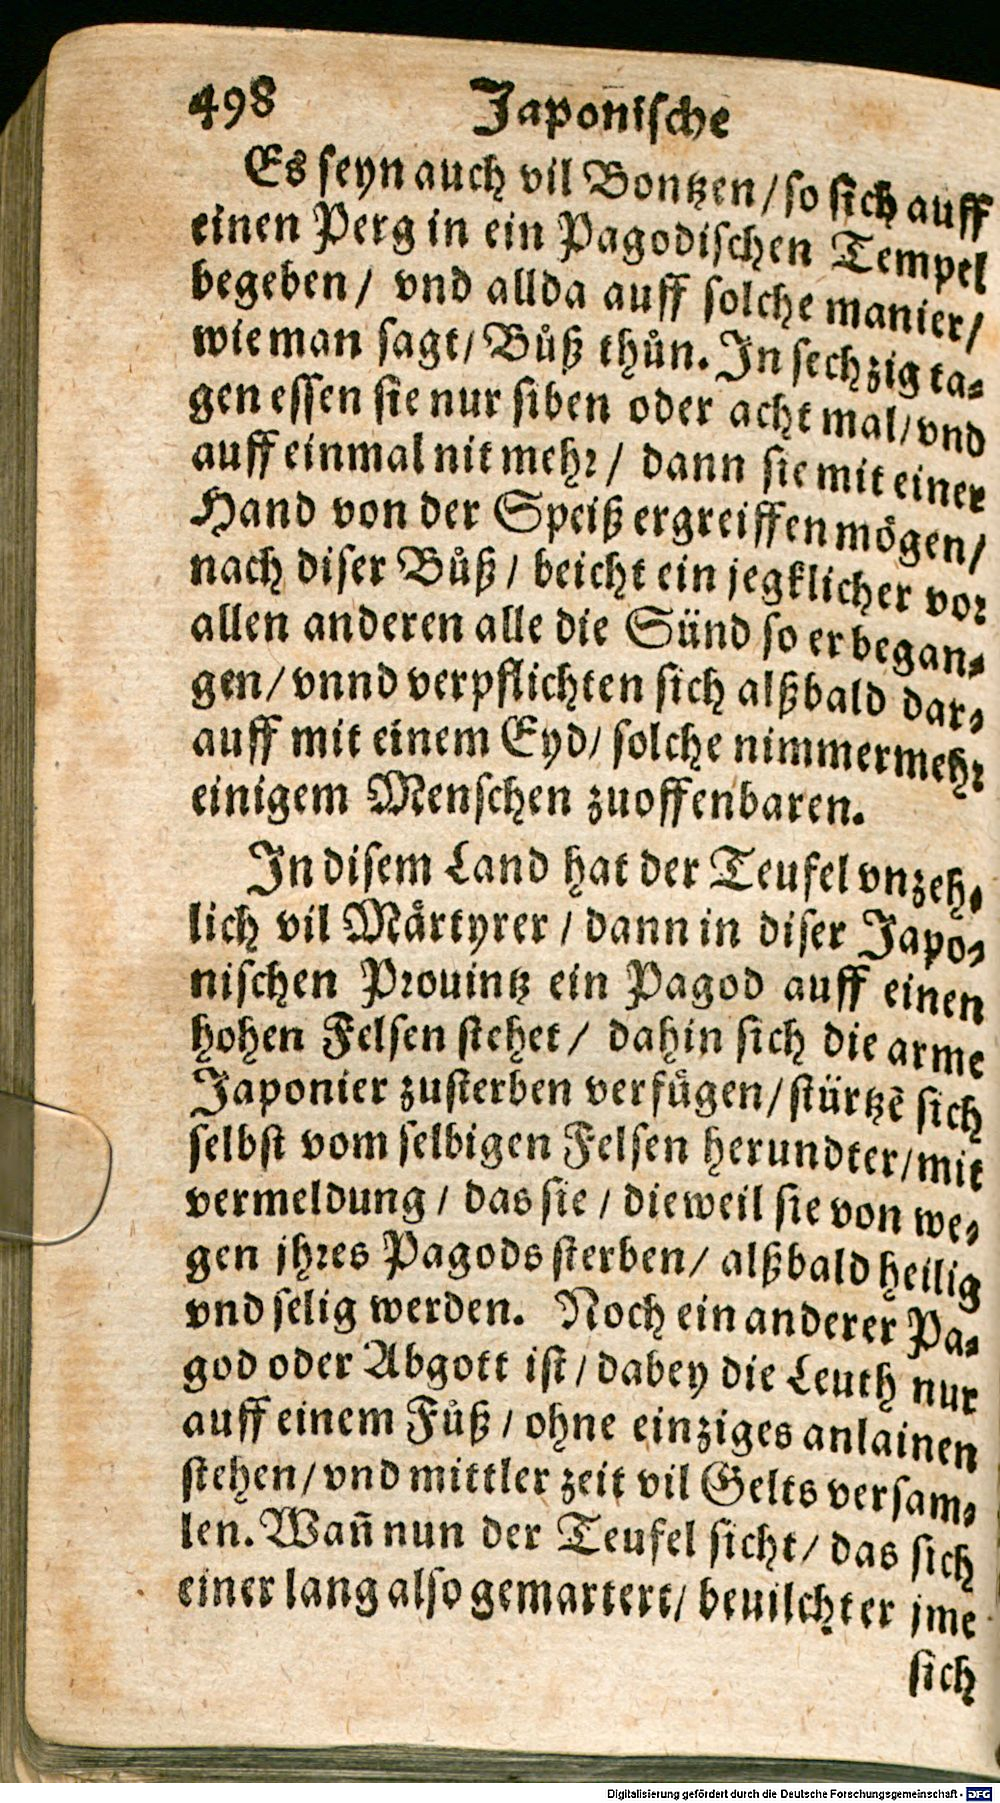 498 Japonische
Es seyn auch vil Bontzen / so sich auff
einen Perg in ein Pagodischen Tempel
begeben / vnd allda auff solche manier /
wie man sagt / Bůß thůn. In sechzig ta-
gen essen sie nur siben oder acht mal / vnd
auff einmal nit mehr / dann sie mit einer
Hand von der Speiß ergreiffen mögen /
nach diser Bůß / beicht ein jegklicher vor
allen anderen alle die Sünd so er began-
gen / vnnd verpflichten sich alßbald dar-
auff mit einem Eyd / solche nimmermehr
einigem Menschen zuoffenbaren.
In disem Land hat der Teufel vnzeh-
lich vil Märtyrer / dann in diser Japo-
nischen Prouintz ein Pagod auff einen
hohen Felsen stehet / dahin sich die arme
Japonier zusterben verfügen / stürtzē sich
selbst vom selbigen Felsen herundter / mit
vermeldung / das sie / dieweil sie von we-
gen jhres Pagods sterben / alßbald heilig
vnd selig werden. Noch ein anderer Pa-
god oder Abgott ist / dabey die Leuth nur
auff einem Fůß / ohne einziges anlainen
stehen / vnd mittler zeit vil Gelts versam-
len. Wañ nun der Teufel sicht / das sich
einer lang also gemartert / beuilcht er jme
sich
Digitalisierung gefördert durch die Deutsche Forschungsgemeinschaft - DFG